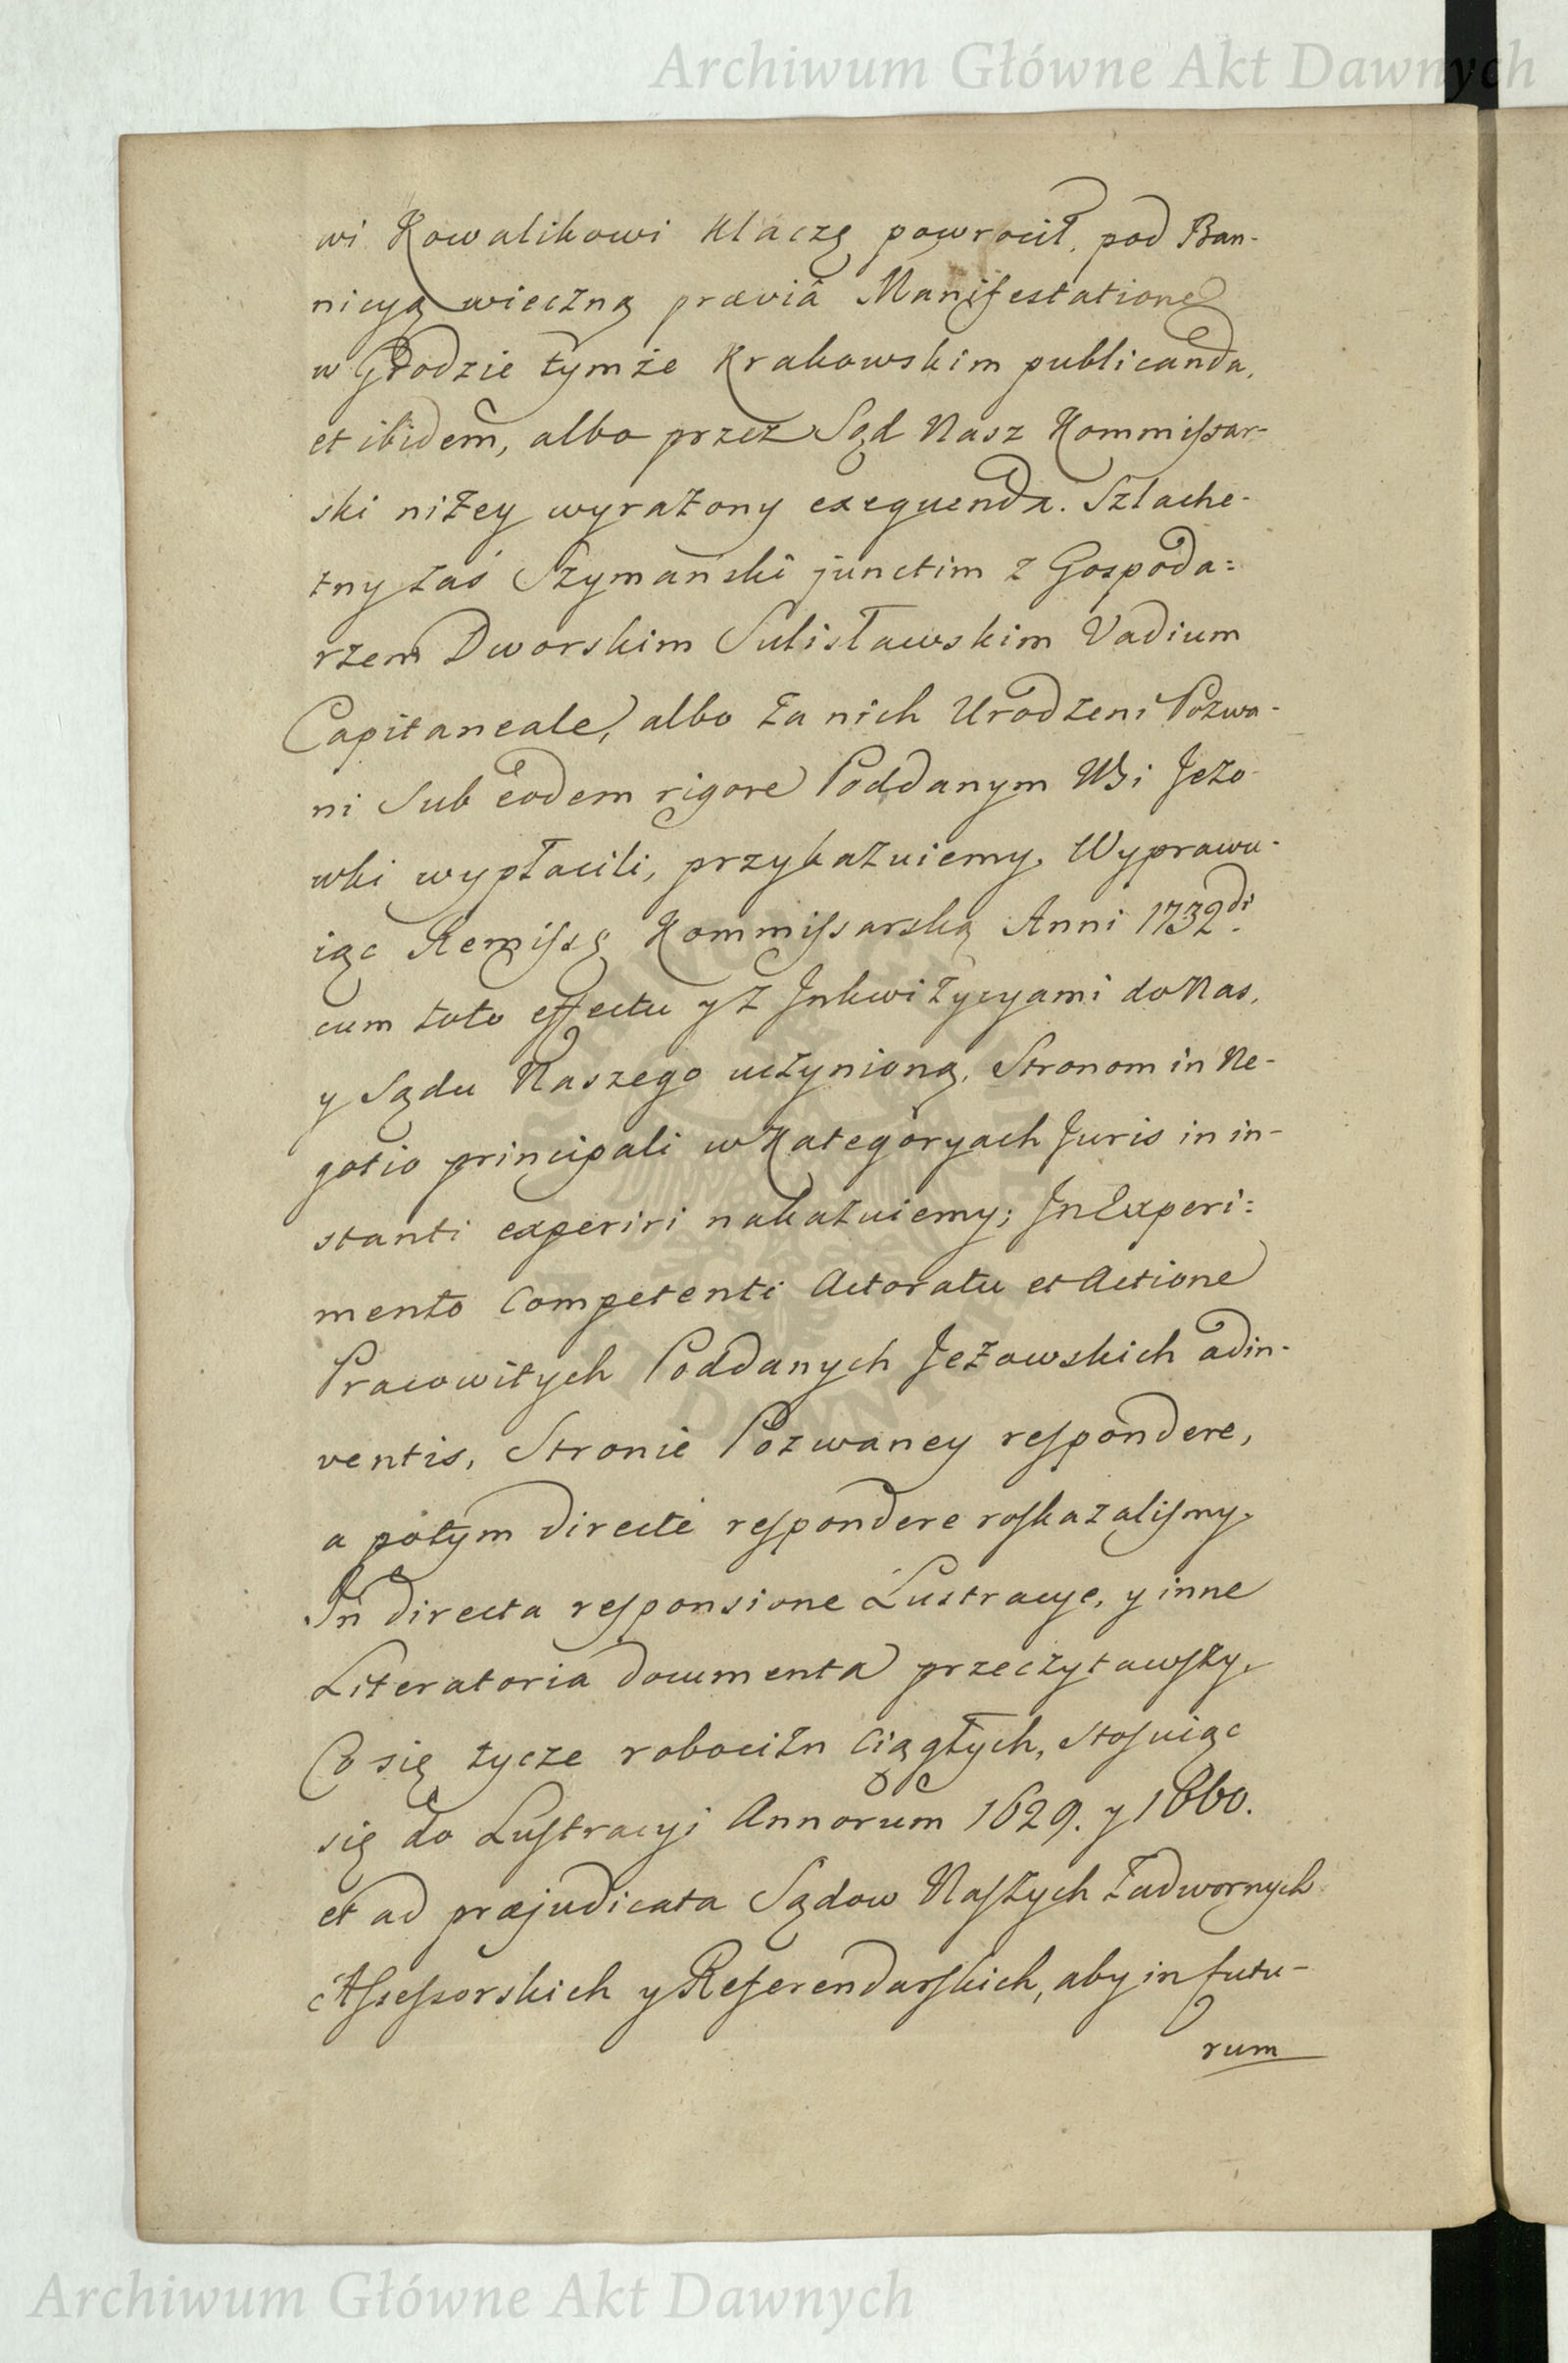 Archiwum Główne Akt Dawnych
wi Kowalikowi klaczę powrocił, pod Ban-
nicyą wieczną prævià Manifestatione
w Grodzie tymże Krakowskim publicanda,
et ibidem, albo przez Sąd Nasz Kommissar-
ski niżey wyrażony exequenda. Szlache-
tny zaś Szymański junctim z Gospoda=
rzem Dworskim Sulisławskim Vadium
Capitaneale, albo za nich Urodzeni Pozwa-
ni sub eodem rigore Poddanym Wsi Jeżo-
wki wypłacili, przykazuiemy. Wyprawu-
iąc Remissę Kommissarską Anni 1732di.
cum toto effectu y z Inkwizycyami do Nas,
y Sądu Naszego uczynioną, Stronom in Ne-
gotio principali w Kategoryach Juris in in-
stanti experiri nakazuiemy; In Experi=
mento Competenti Actoratu et Actione
Pracowitych Poddanych Jeżowskich adin-
ventis, Stronie Pozwaney respondere,
a potym directè respondere roskazalismy.
In directa responsione Lustracye, y inne
Literatoria documenta przeczytawszy,
Co się tycze robocizn ciągłych, stosuiąc
się do Lustracyi Annorum 1629. y 1660.
et ad præjudicata Sądow Naszych Zadwornych
Assessorskich y Referendarskich, aby in futu-
rum
Archiwum Główne Akt Dawnych